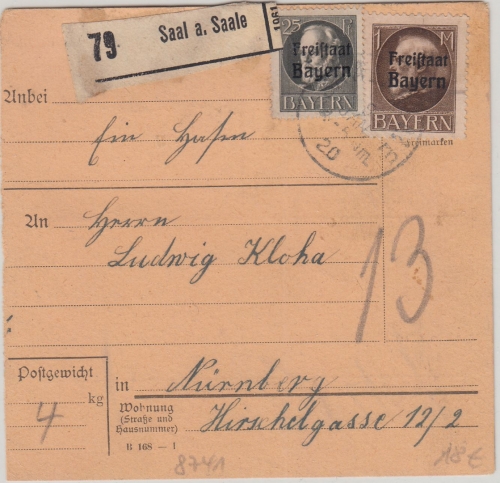 79 Saal a. Saale
25 Pf
Freistaat
Bayern
BAYERN
1 M
Freistaat
Bayern
BAYERN
Anbei
Ein Hasen
20
Freimarken
An Herrn
Ludwig Kloha
13
Postgewicht
4 kg
in Nürnberg
Wohnung
(Straße und
Hausnummer)
Hirschelgasse 12/2
B 168 — 1
8741
18€